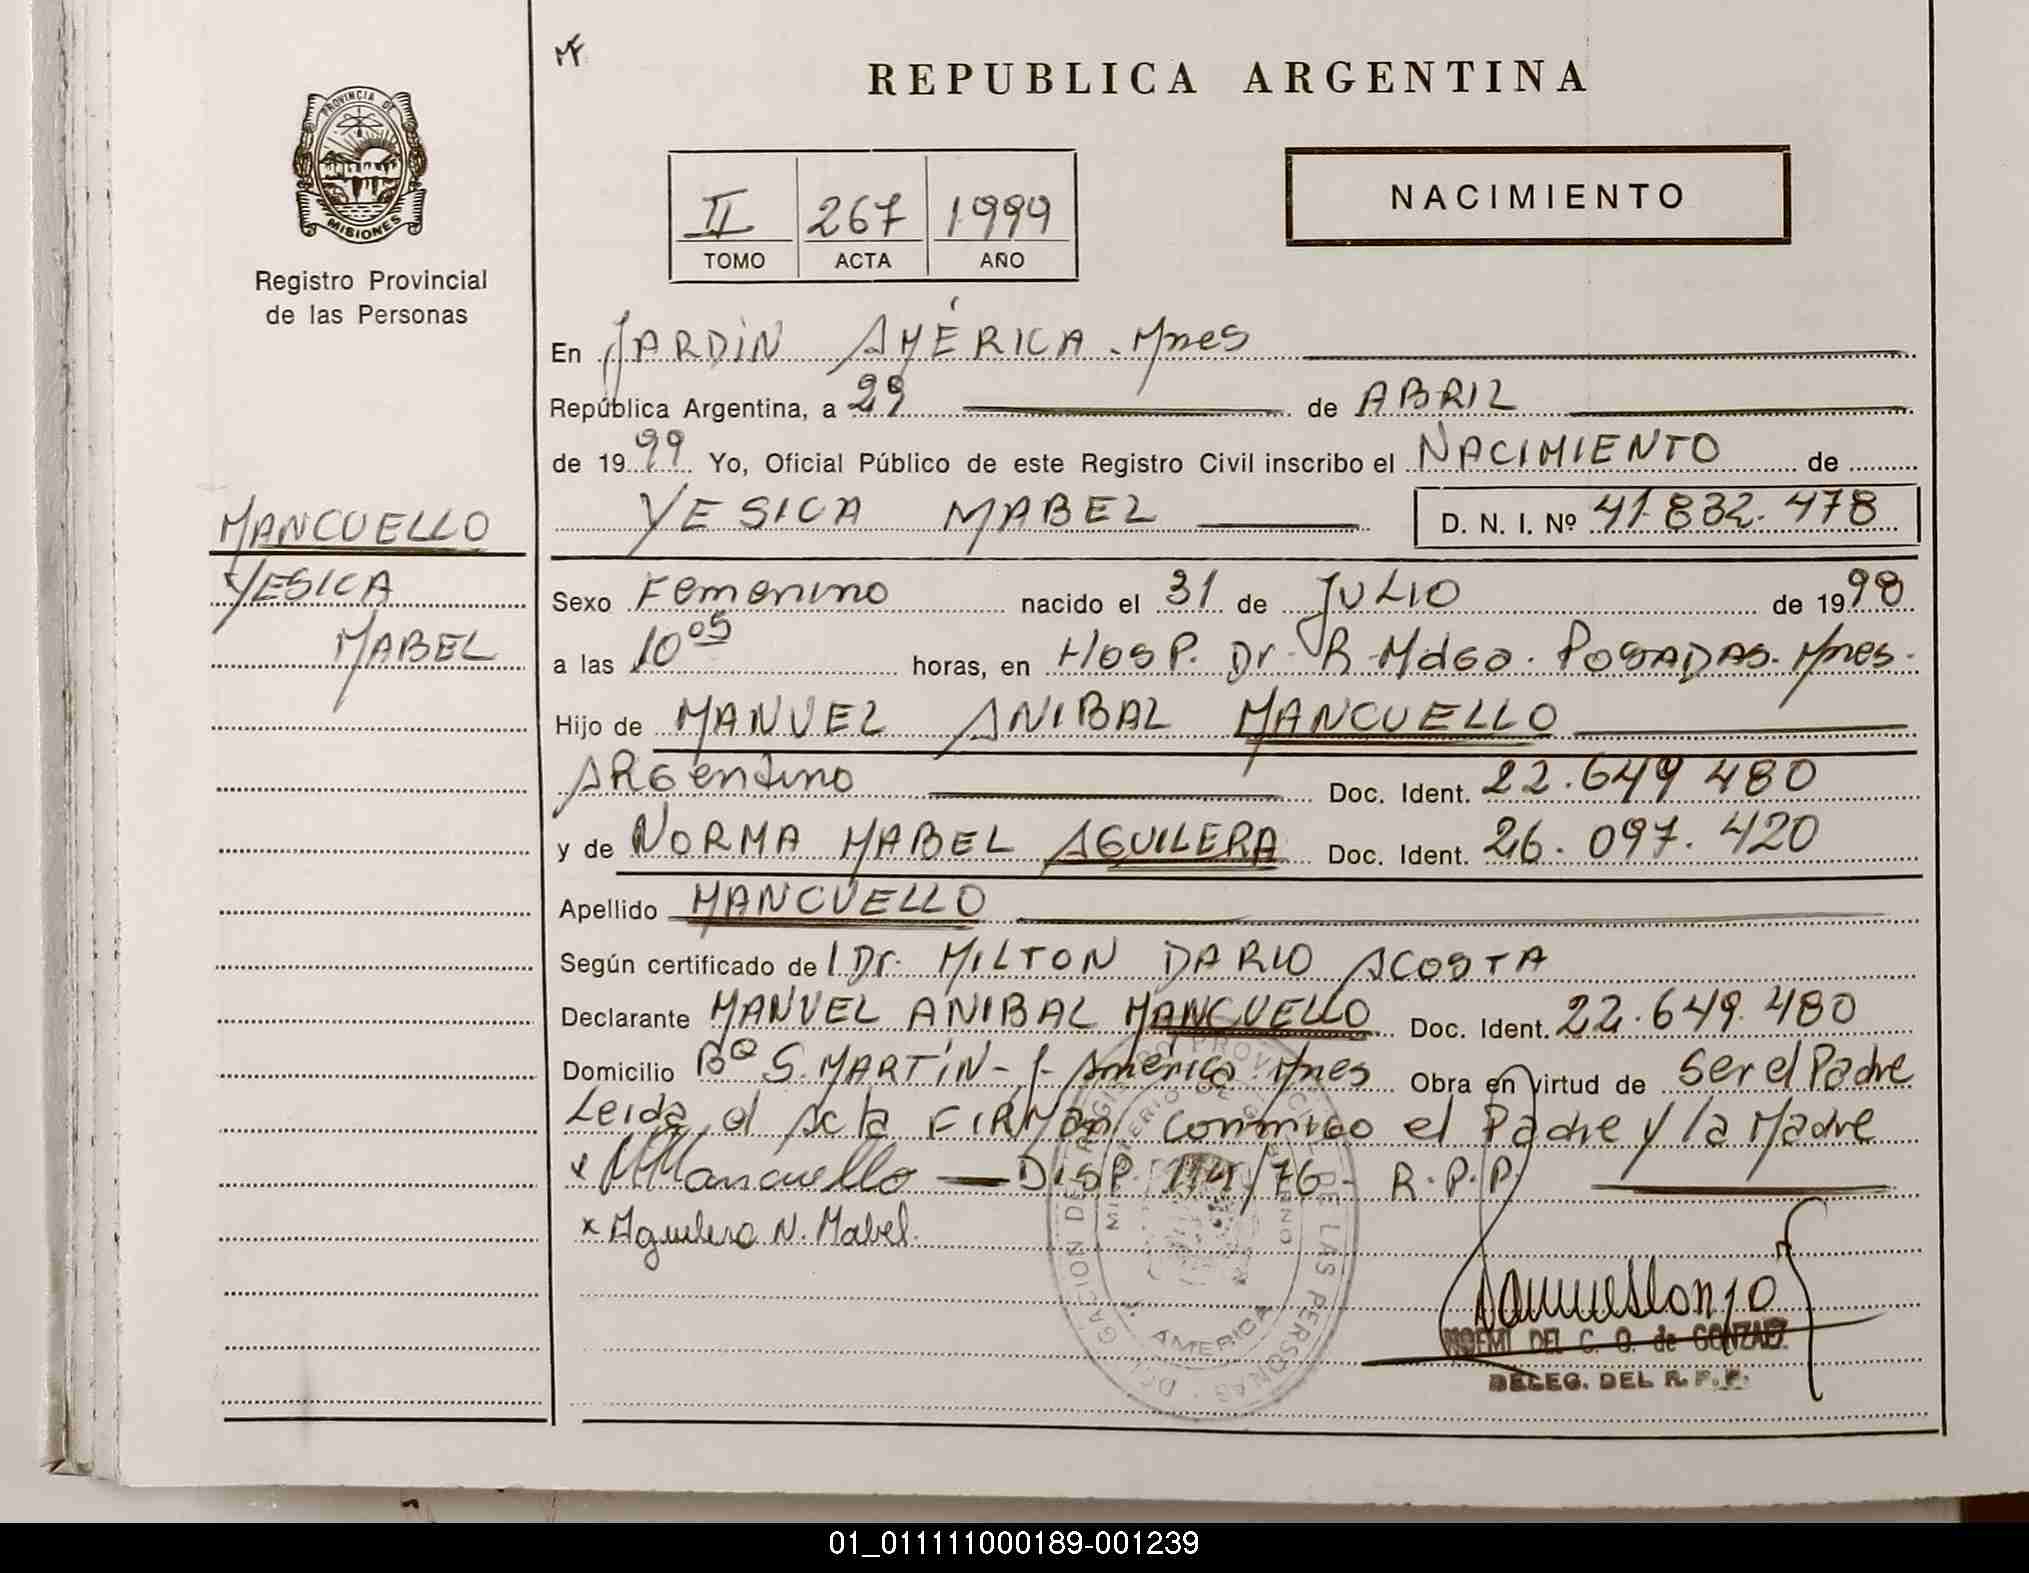 MF
REPUBLICA ARGENTINA
PROVINCIA DE
MISIONES
Registro Provincial
de las Personas
II 267 1999
TOMO ACTA AÑO
NACIMIENTO
En JARDIN AMÉRICA. Mnes
República Argentina, a 29 de ABRIL
de 1999 Yo, Oficial Público de este Registro Civil inscribo el NACIMIENTO de
YESICA MABEL D. N. I. Nº 41.832.478
MANCUELLO
YESICA
MABEL
Sexo Femenino nacido el 31 de JULIO de 1998
a las 10⁰⁵ horas, en HOSP. Dr. R. Mdga. POSADAS. Mnes.
Hijo de MANUEL ANIBAL MANCUELLO
ARgentino Doc. Ident. 22.649 480
y de NORMA MABEL AGUILERA Doc. Ident. 26.097.420
Apellido MANCUELLO
Según certificado de l Dr. MILTON DARIO ACOSTA
Declarante MANUEL ANIBAL MANCUELLO Doc. Ident. 22.649.480
Domicilio Bº S. MARTÍN - J. América Mnes Obra en virtud de ser el Padre
Leida el Acta FIRMAN conmigo el Padre y la Madre
x MMancuello — DISP. 114/76 - R.P.P.
x Aguilera N. Mabel.
DELEGACION DEL REGISTRO PROVINCIAL DE LAS PERSONAS
MINISTERIO DE GOBIERNO
AMERICA
NOEMI DEL C. O. de GONZALEZ
DELEG. DEL R. P. P.
01_011111000189-001239